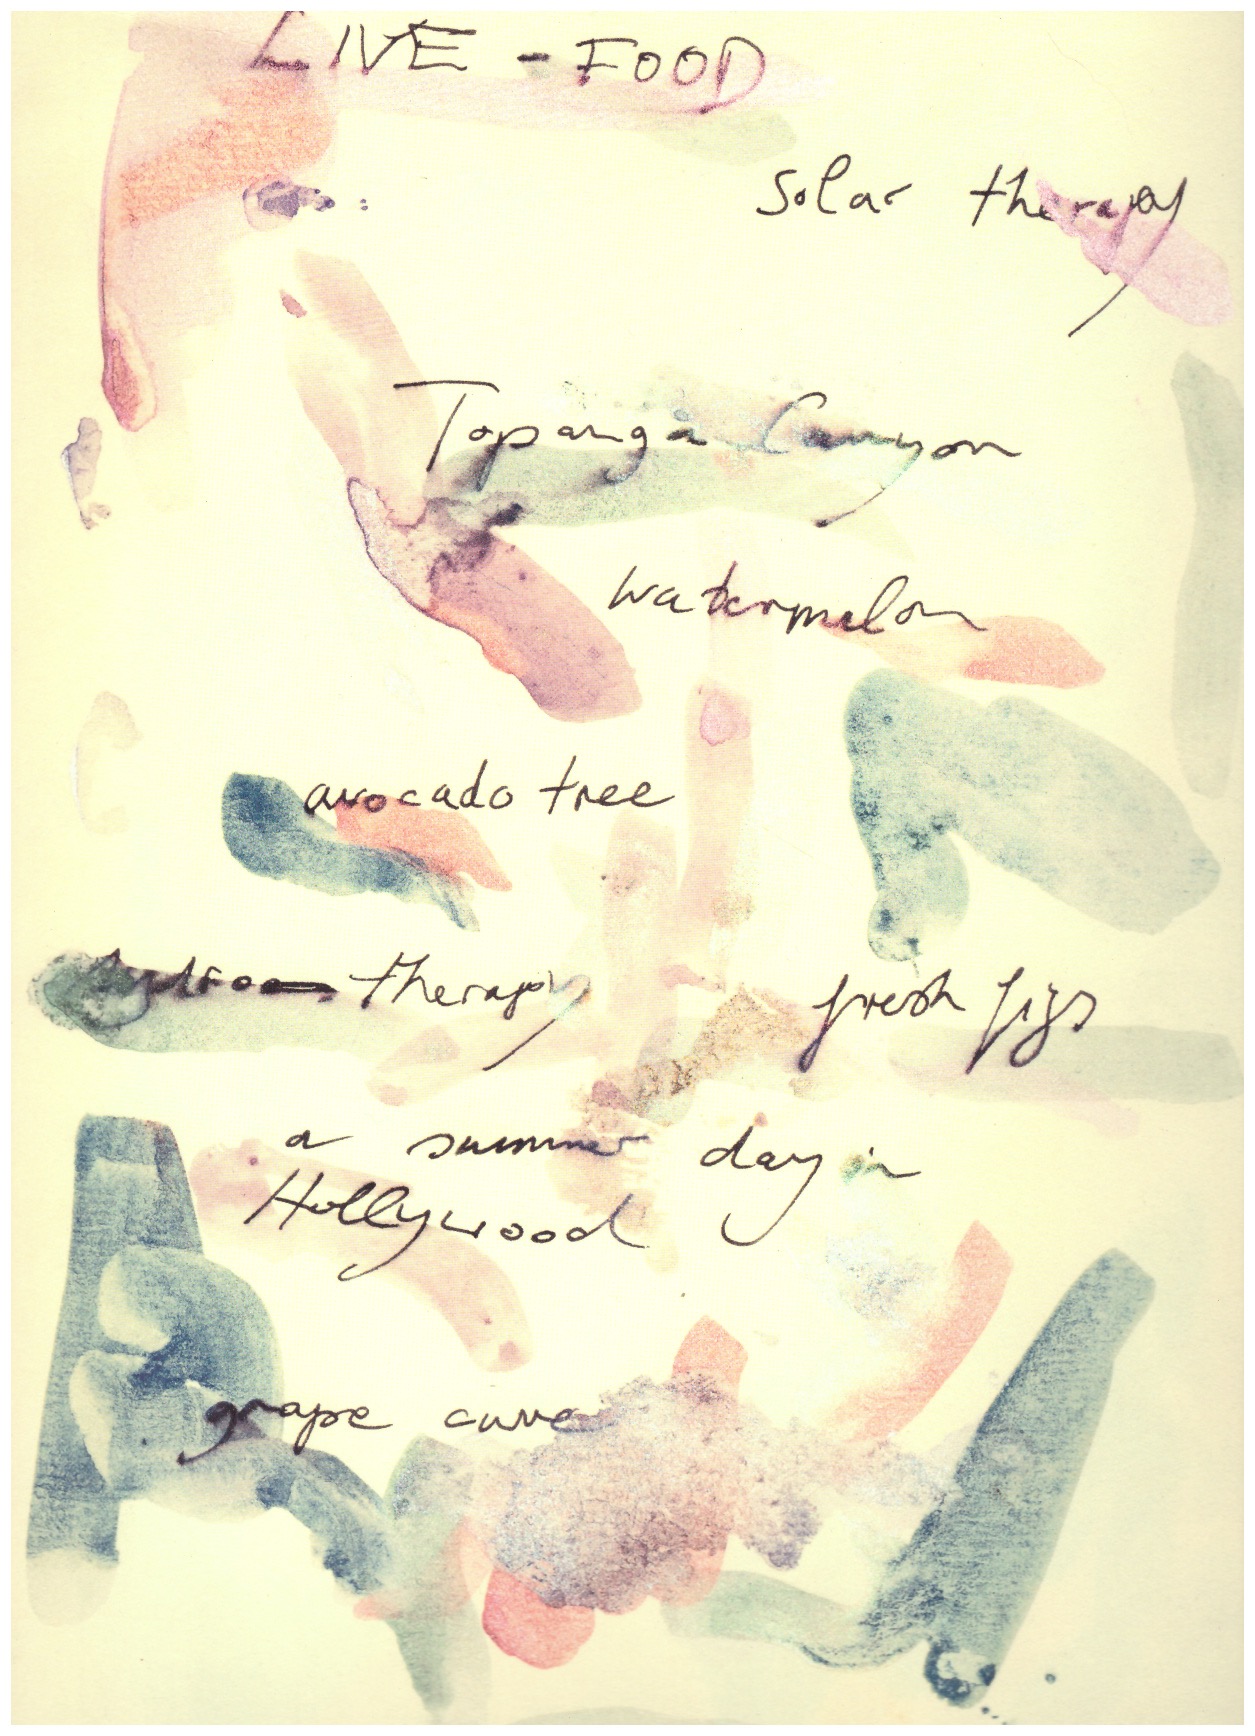 LIVE - FOOD
solar therapy
Topanga Canyon
watermelon
avocado tree
therapy
fresh figs
a summer day in
Hollywood
grape cure